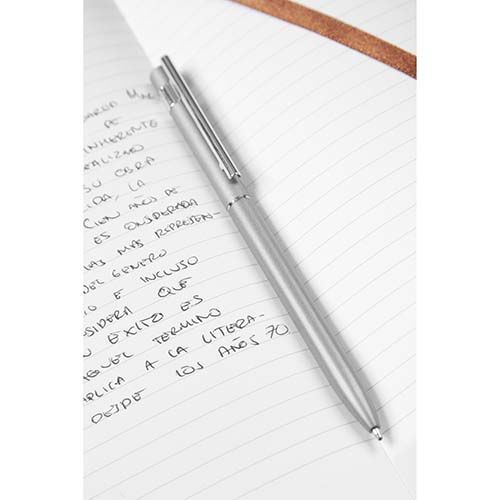 GARCIA MAR
DE
INHERENTE
REALIZMO
SU OBRA
IDA, LA
CIEN AÑOS DE
ES ONSIDERADA
LAS MAS REPRESEN-
DEL GENERO
O E INCLUSO
NSIDERA QUE
U EXITO ES
AQUEL TERMINO
APLICA A LA LITERA-
DESDE LOS AÑOS 70.